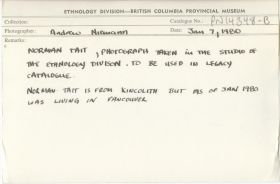 ETHNOLOGY DIVISION—BRITISH COLUMBIA PROVINCIAL MUSEUM
Collection: Catalogue No.: PN14348-B
Photographer: Andrew Niemann Date: Jan 7, 1980
Remarks:
NORMAN TAIT, PHOTOGRAPH TAKEN in the STUDIO OF
THE ETHNOLOGY DIVISION. TO BE USED IN LEGACY
CATALOGUE.
NORMAN TAIT IS FROM KINCOLITH BUT AS OF JAN 1980
WAS LIVING IN VANCOUVER